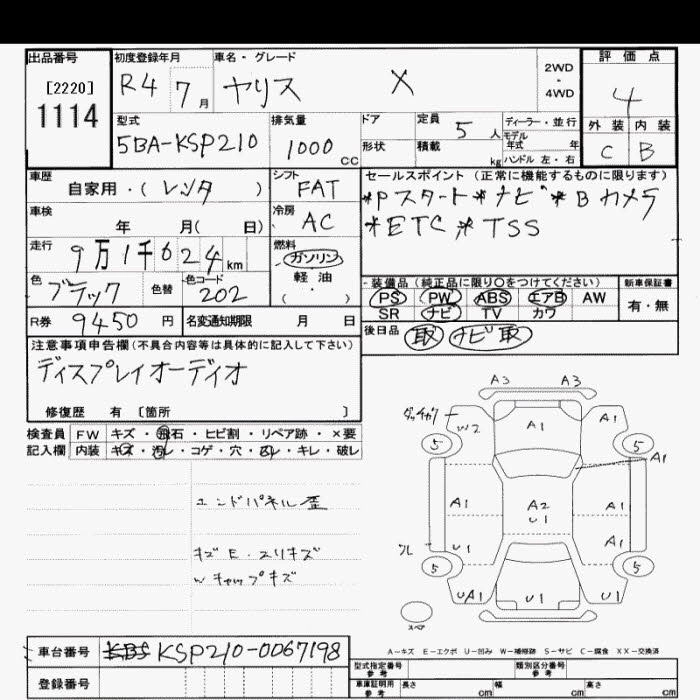 出品番号
[2220]
1114
初度登録年月
R4 7月
車名・グレード
ヤリス X
2WD
・
4WD
評価点
4
外装 内装
C B
型式
5BA-KSP210
排気量
1000 cc
ドア
形状
定員 5人
積載 kg
ディーラー・並行
モデル年式 年
ハンドル 左・右
車歴
自家用・(レンタ)
シフト
FAT
車検
年 月( 日)
冷房
AC
走行
9万1千624km
燃料
ガソリン
軽油
( )
色
ブラック
色替
色コード
202
R券 9450円
名変通知期限 月 日
セールスポイント (正常に機能するものに限ります)
*Pスタート*ナビ*Bカメラ
*ETC*TSS
装備品(純正品に限り○をつけてください)
PS PW ABS エアB AW
SR ナビ TV カワ
新車保証書
有・無
後日品
取 ナビ取
注意事項申告欄(不具合内容等は具体的に記入して下さい)
ディスプレイオーディオ
修復歴 有 [箇所 ]
検査員
記入欄
FW キズ・飛石・ヒビ割・リペア跡・×要
内装 キズ・汚レ・コゲ・穴・凹レ・キレ・破レ
エンドパネル歪
キズE・スリキズ
Wキャップキズ
A3 A3
W2 A1 A1
5 5
A1
A1 A2 A1
U1
A1
U1
5 5
UA1 U1 U1
スペア
A-キズ E-エクボ U-凹み W-補修跡 S-サビ C-腐食 XX-交換済
車台番号 KSP210-0067198
登録番号
型式指定番号
参考
類別区分番号
参考
車庫証明用
参考
長さ cm 幅 cm 高さ cm